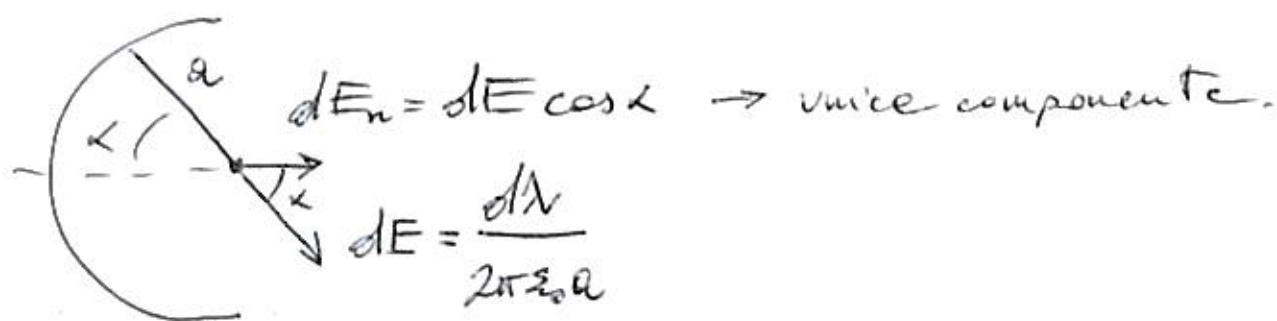 a
dEₙ = dE cos α → unica componente.
α
α
dE = dλ / 2πε₀a